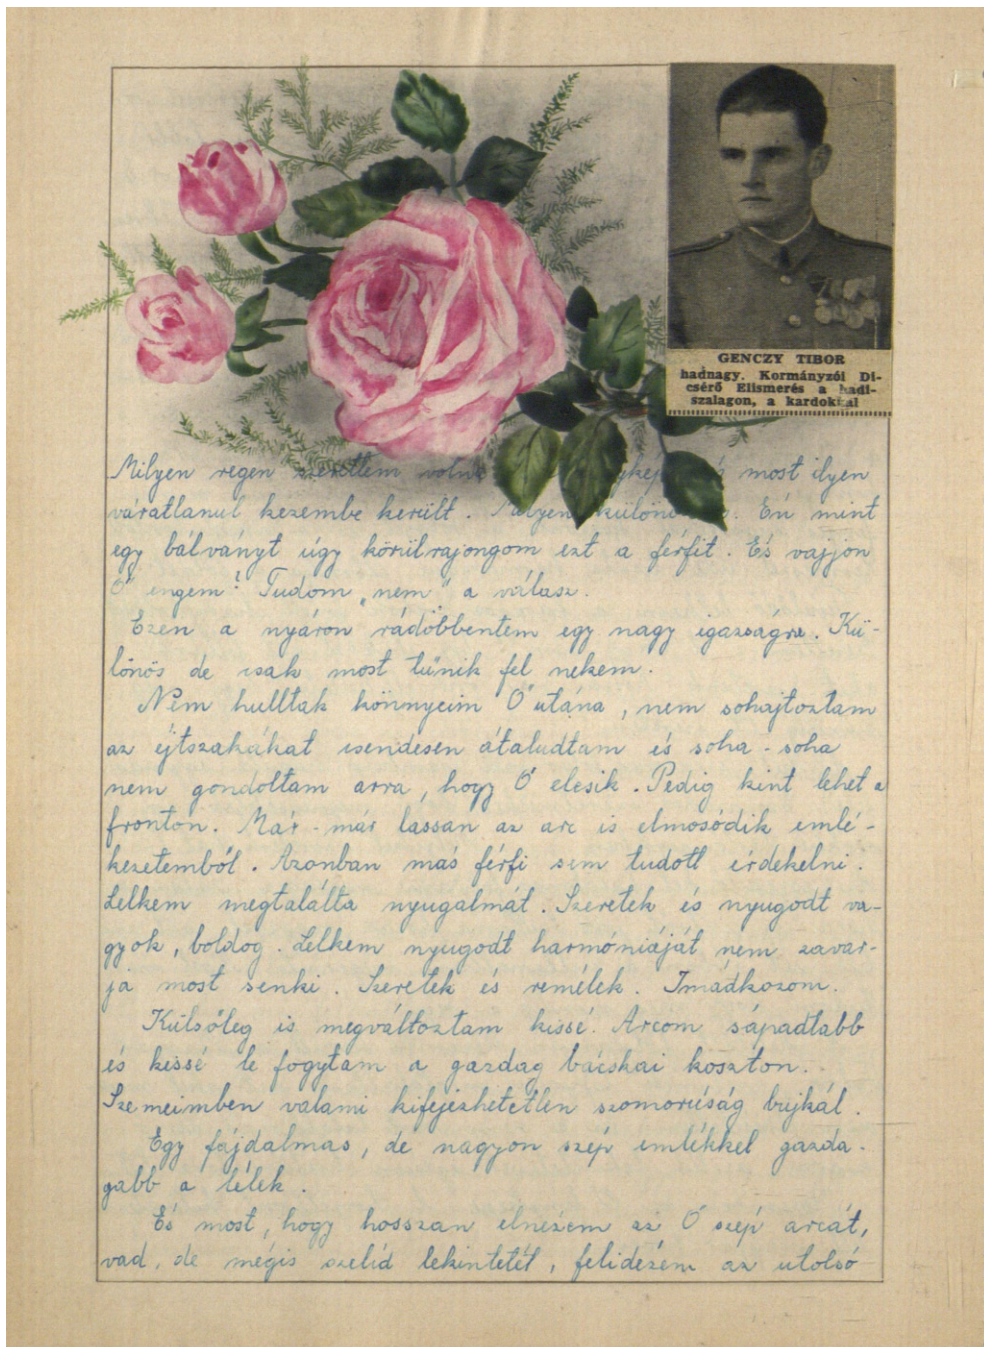 GENCZY TIBOR
hadnagy. Kormányzói Di-
csérő Elismerés a hadi-
szalagon, a kardokkal
Milyen régen szerettem volna most ilyen
váratlanul kezembe került. Milyen különös. Én mint
egy bálványt úgy körülrajongom ezt a férfit. És vajjon
Ő engem? Tudom „nem" a válasz.
Ezen a nyáron rádöbbentem egy nagy igazságra. Kü-
lönös de csak most tűnik fel nekem.
Nem hulltak könnyeim Ő utána, nem sohajtoztam
az éjtszakákat csendesen átaludtam és soha - soha
nem gondoltam arra, hogy Ő elesik. Pedig kint lehet a
fronton. Már - már lassan az arc is elmosódik emlé-
kezetemből. Azonban más férfi sem tudott érdekelni.
Lelkem megtalálta nyugalmát. Szeretek és nyugodt va-
gyok, boldog. Lelkem nyugodt harmóniáját nem zavar-
ja most senki. Szeretek és remélek. Imádkozom.
Külsőleg is megváltoztam kissé. Arcom sápadtabb
és kissé le fogytam a gazdag bácskai koszton.
Szemeimben valami kifejezhetetlen szomorúság bujkál.
Egy fájdalmas, de nagyon szép emlékkel gazda-
gabb a lélek.
És most, hogy hosszan elnézem az Ő szép arcát,
vad, de mégis szelid tekintetét, felidézem az utolsó